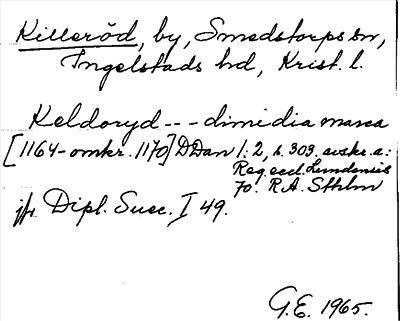 Killeröd, by, Smedstorps sn,
Ingelstads hd, Krist. l.
Keldoryd --- dimidia marca
[1164-omkr. 1170] DDan 1:2, s. 303. avskr. a:
Reg. eccl. Lundensis
fo. R.A. Sthlm
jfr. Dipl. Suec. I 49.
G.E. 1965.